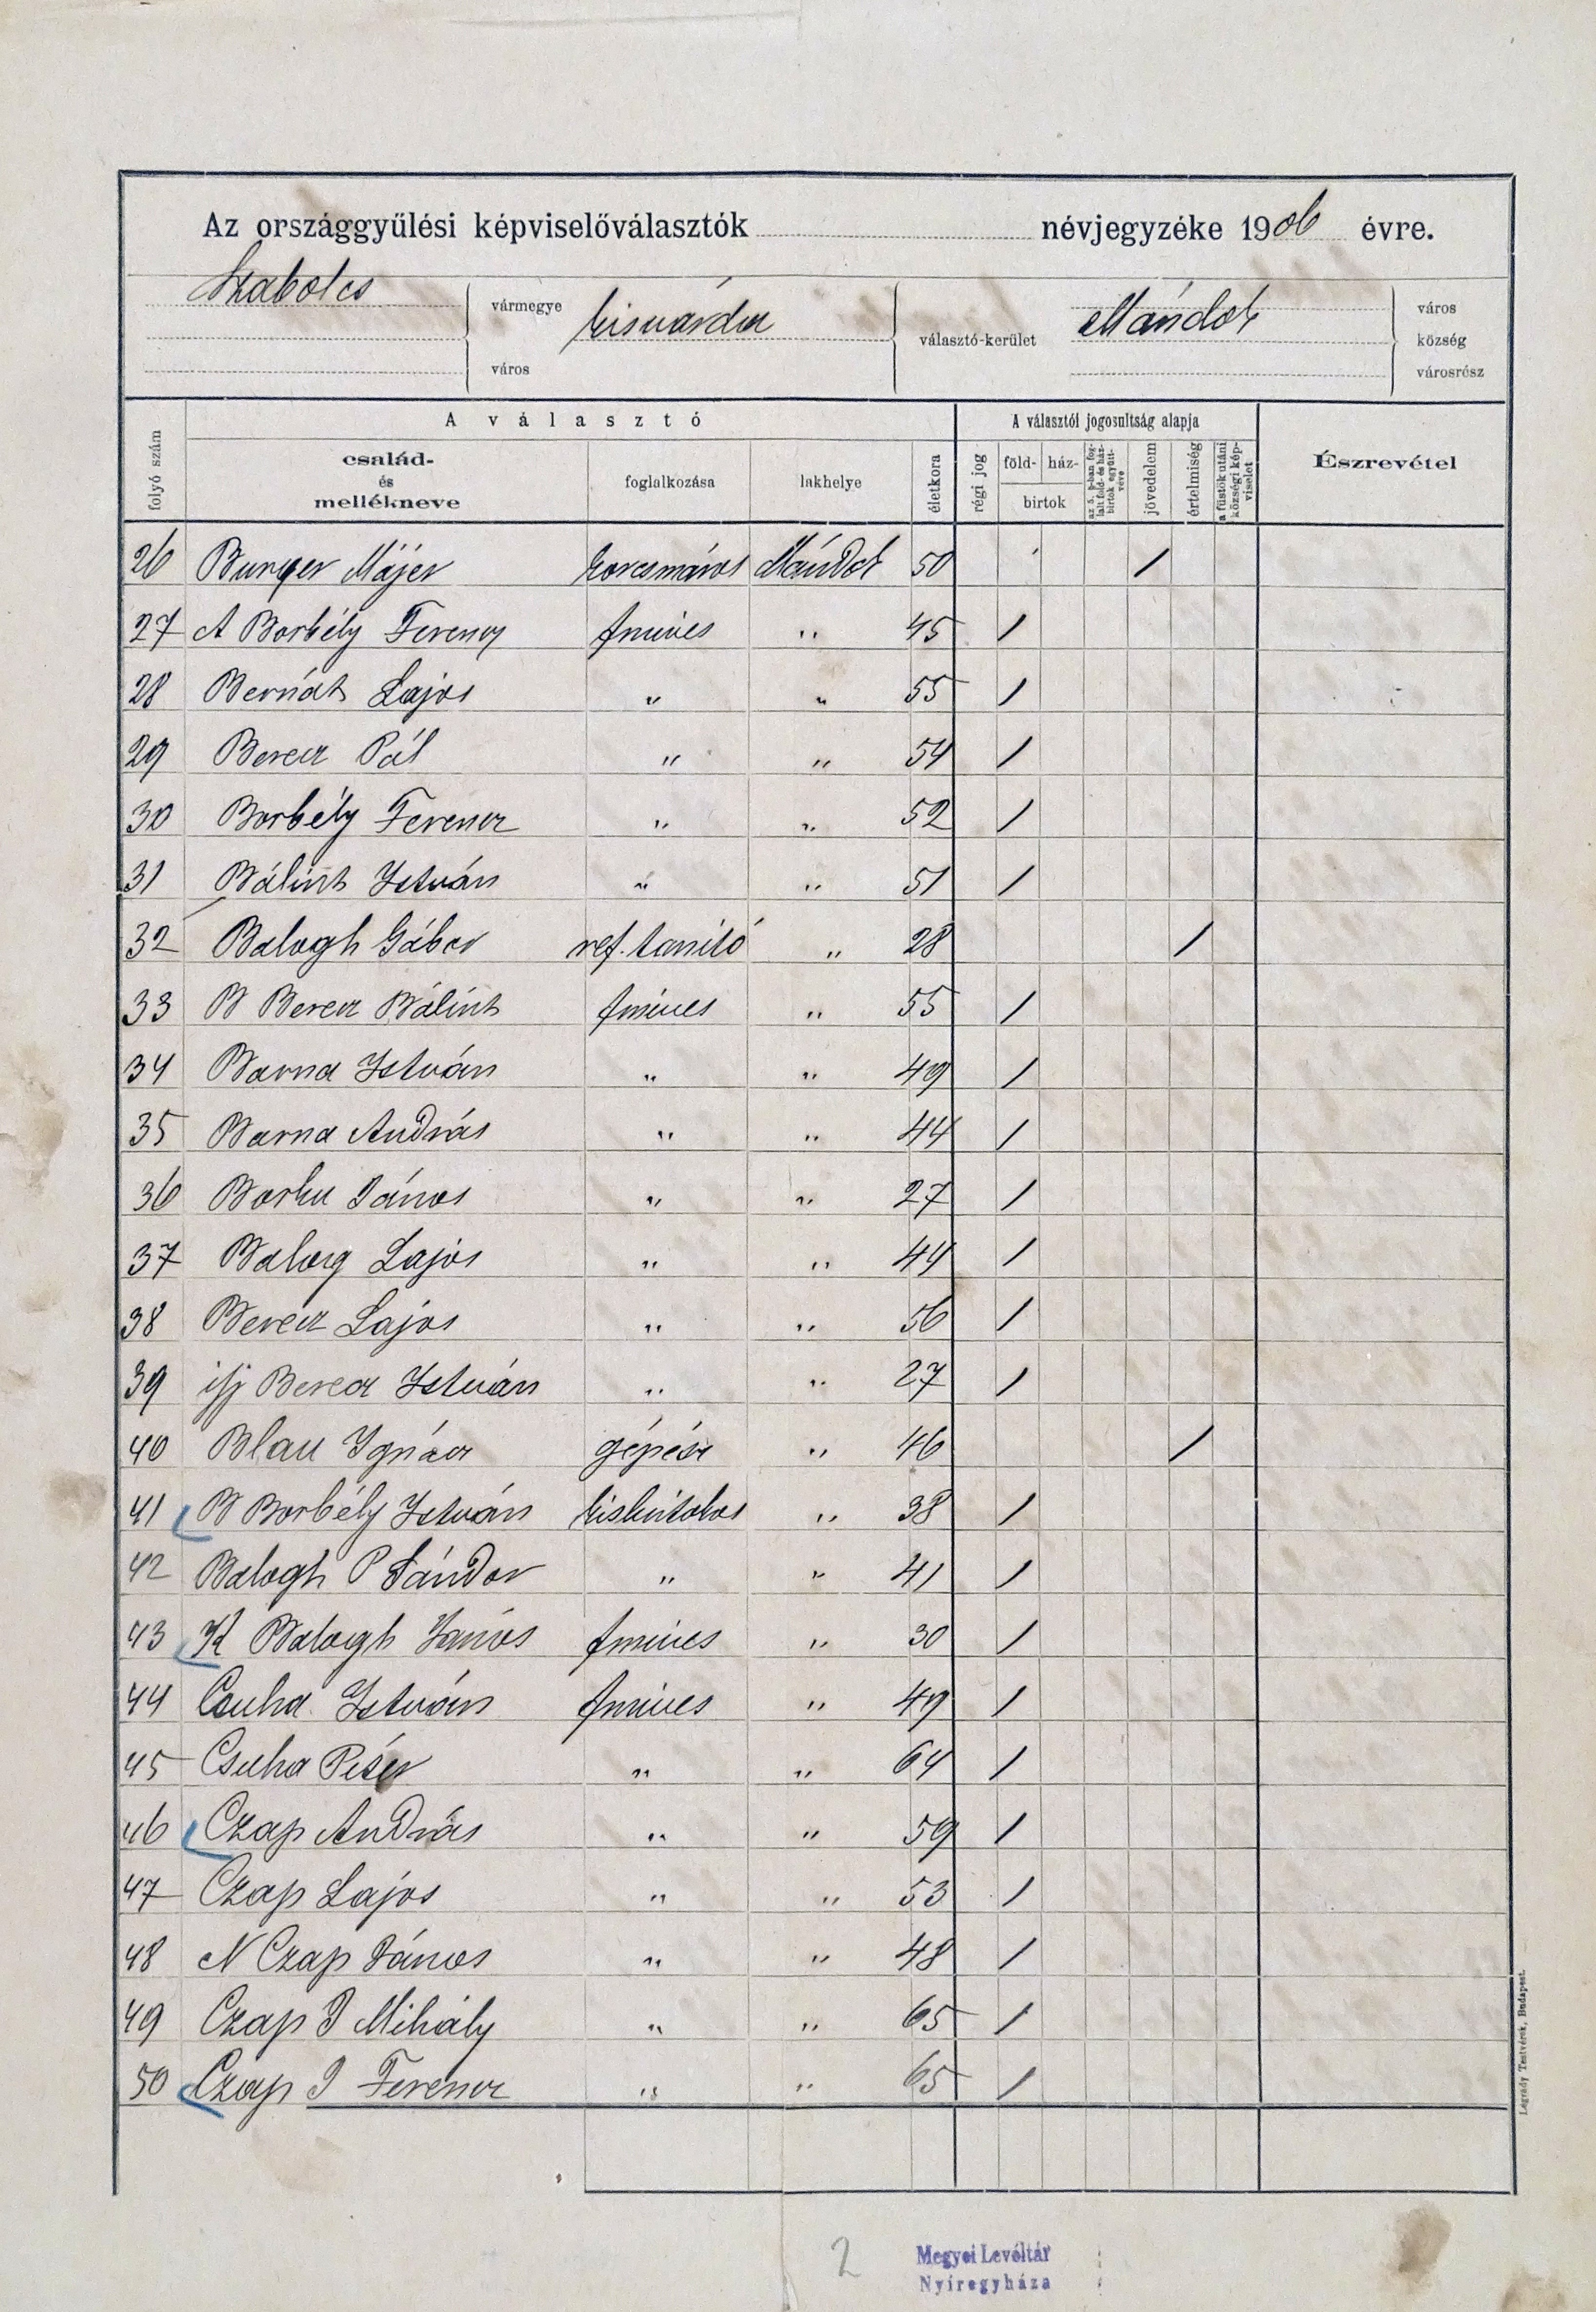 Az országgyűlési képviselőválasztók névjegyzéke 1906 évre.
Szabolcs vármegye város
kisvárda választó-kerület
Mándok város község városrész
folyó szám
A választó
család- és mellékneve
foglalkozása
lakhelye
életkora
A választói jogosultság alapja
régi jog
föld- ház- birtok
az 5. §-ban fog-lalt föld- és ház-birtok együtt-véve
jövedelem
értelmiség
a füstök utáni községi kép-viselet
Észrevétel
26 Burger Májer korcsmáros Mándok 50 /
27 A Borbély Ferencz fmives " 45 /
28 Bernáth Lajos " " 55 /
29 Berecz Pál " " 54 /
30 Borbély Ferencz " " 52 /
31 Bálint István " " 51 /
32 Balogh Gábor ref. tanító " 28 /
33 B Berecz Bálint fmives " 55 /
34 Barna István " " 49 /
35 Barna András " " 44 /
36 Borku János " " 27 /
37 Balog Lajos " " 44 /
38 Berecz Lajos " " 56 /
39 ifj Berecz István " " 27 /
40 Blau Ignácz gépész " 46 /
41 B Borbély István kisbirtokos " 38 /
42 Balogh P Sándor " " 41 /
43 K Balogh János fmives " 30 /
44 Csuha István fmives " 49 /
45 Csuha Péter " " 64 /
46 Czap András " " 59 /
47 Czap Lajos " " 53 /
48 N Czap János " " 48 /
49 Czap J Mihály " " 65 /
50 Czap J Ferencz " " 65 /
Légrády Testvérek, Budapest.
2
Megyei Levéltár
Nyíregyháza